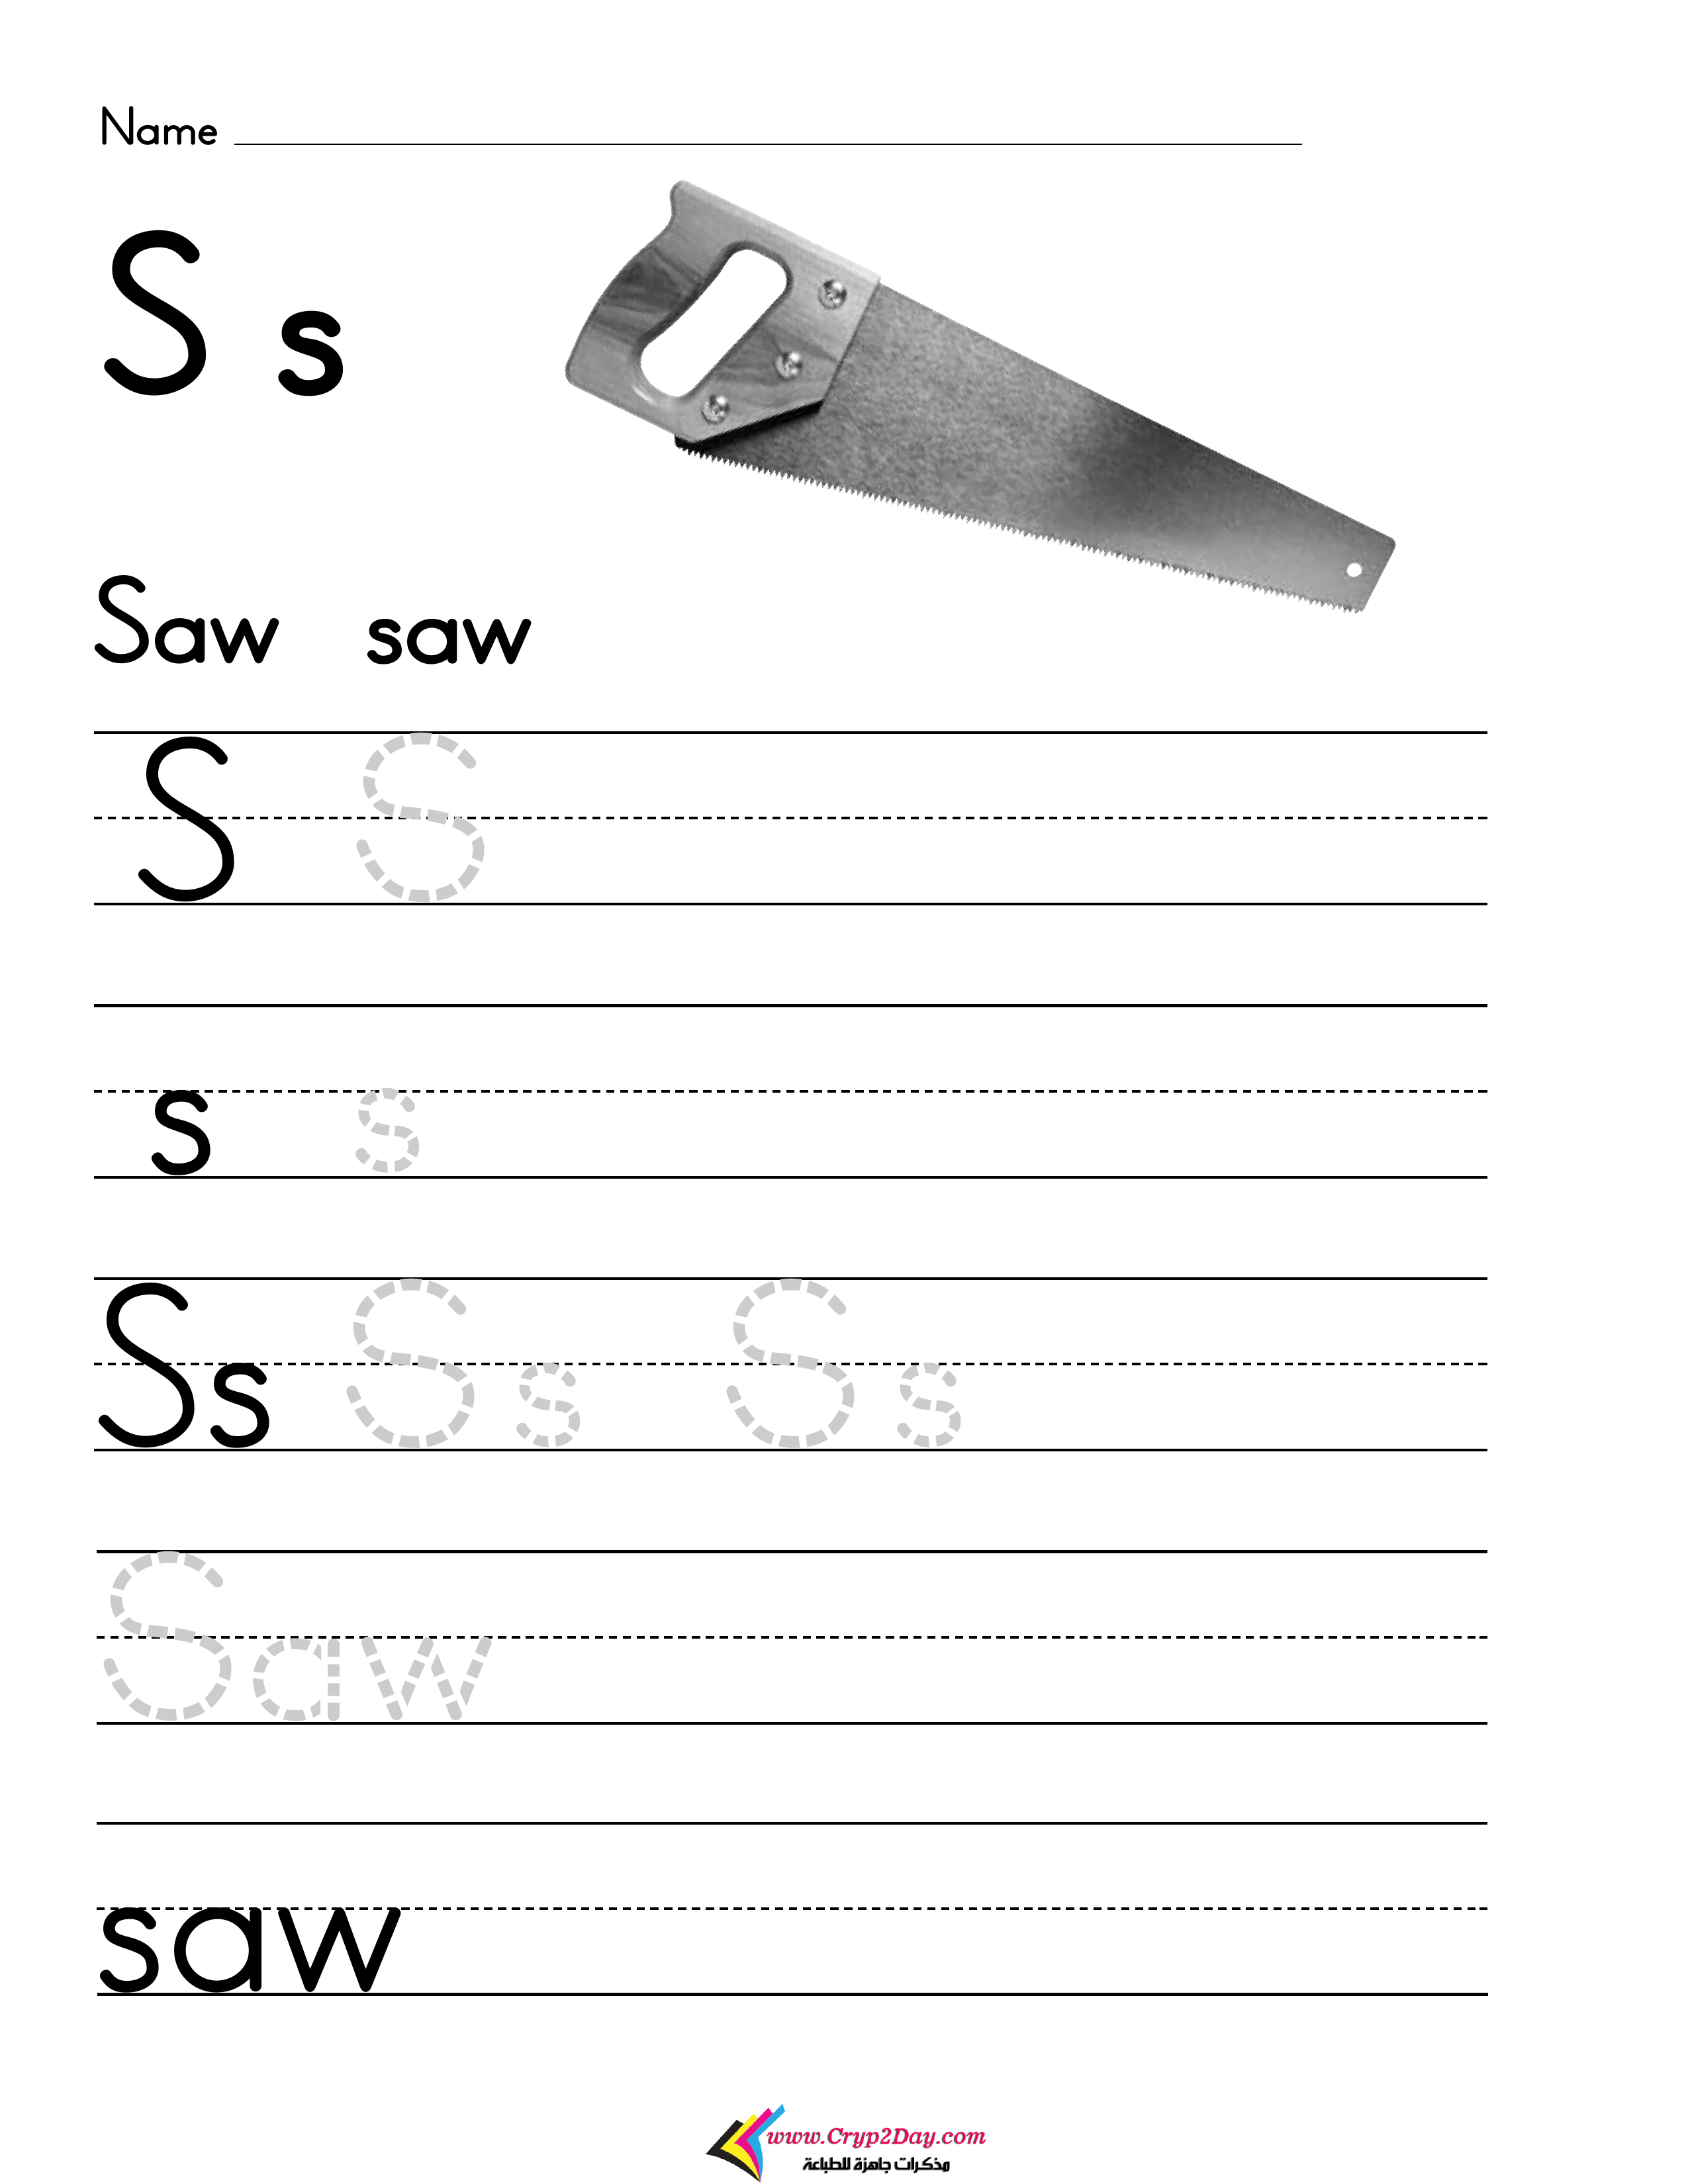 Name
S s
Saw saw
S S
s s
Ss S s S s
Saw
saw
www.Cryp2Day.com
مذكرات جاهزة للطباعة